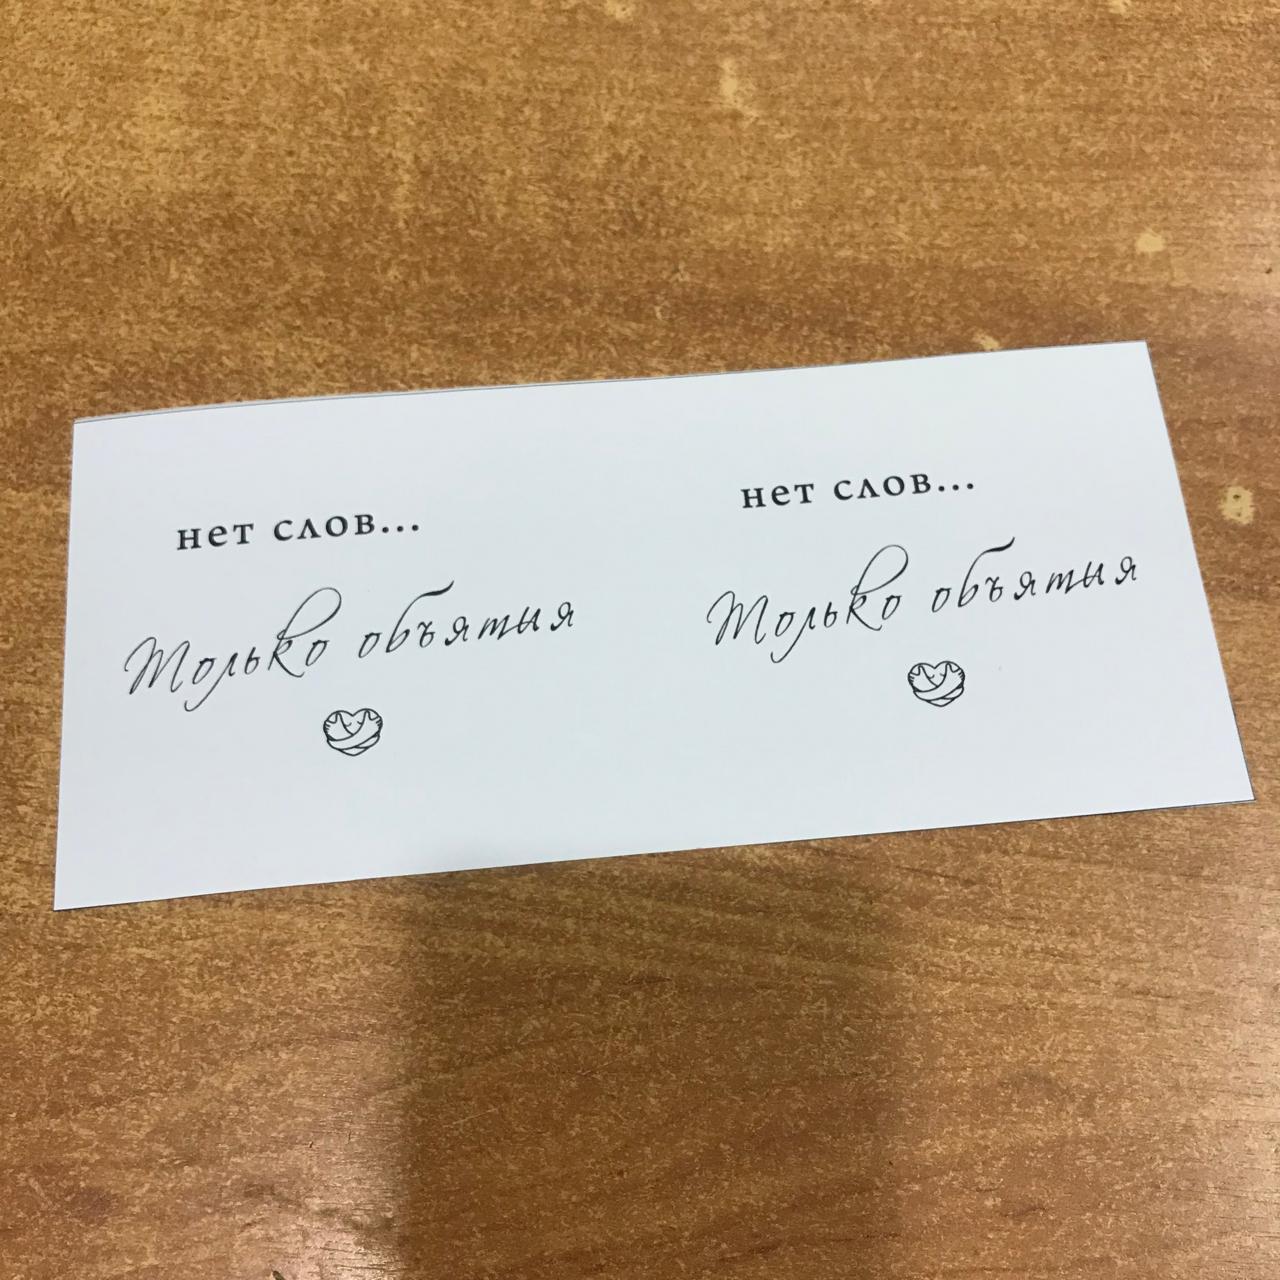 нет слов...
Только объятия
нет слов...
Только объятия